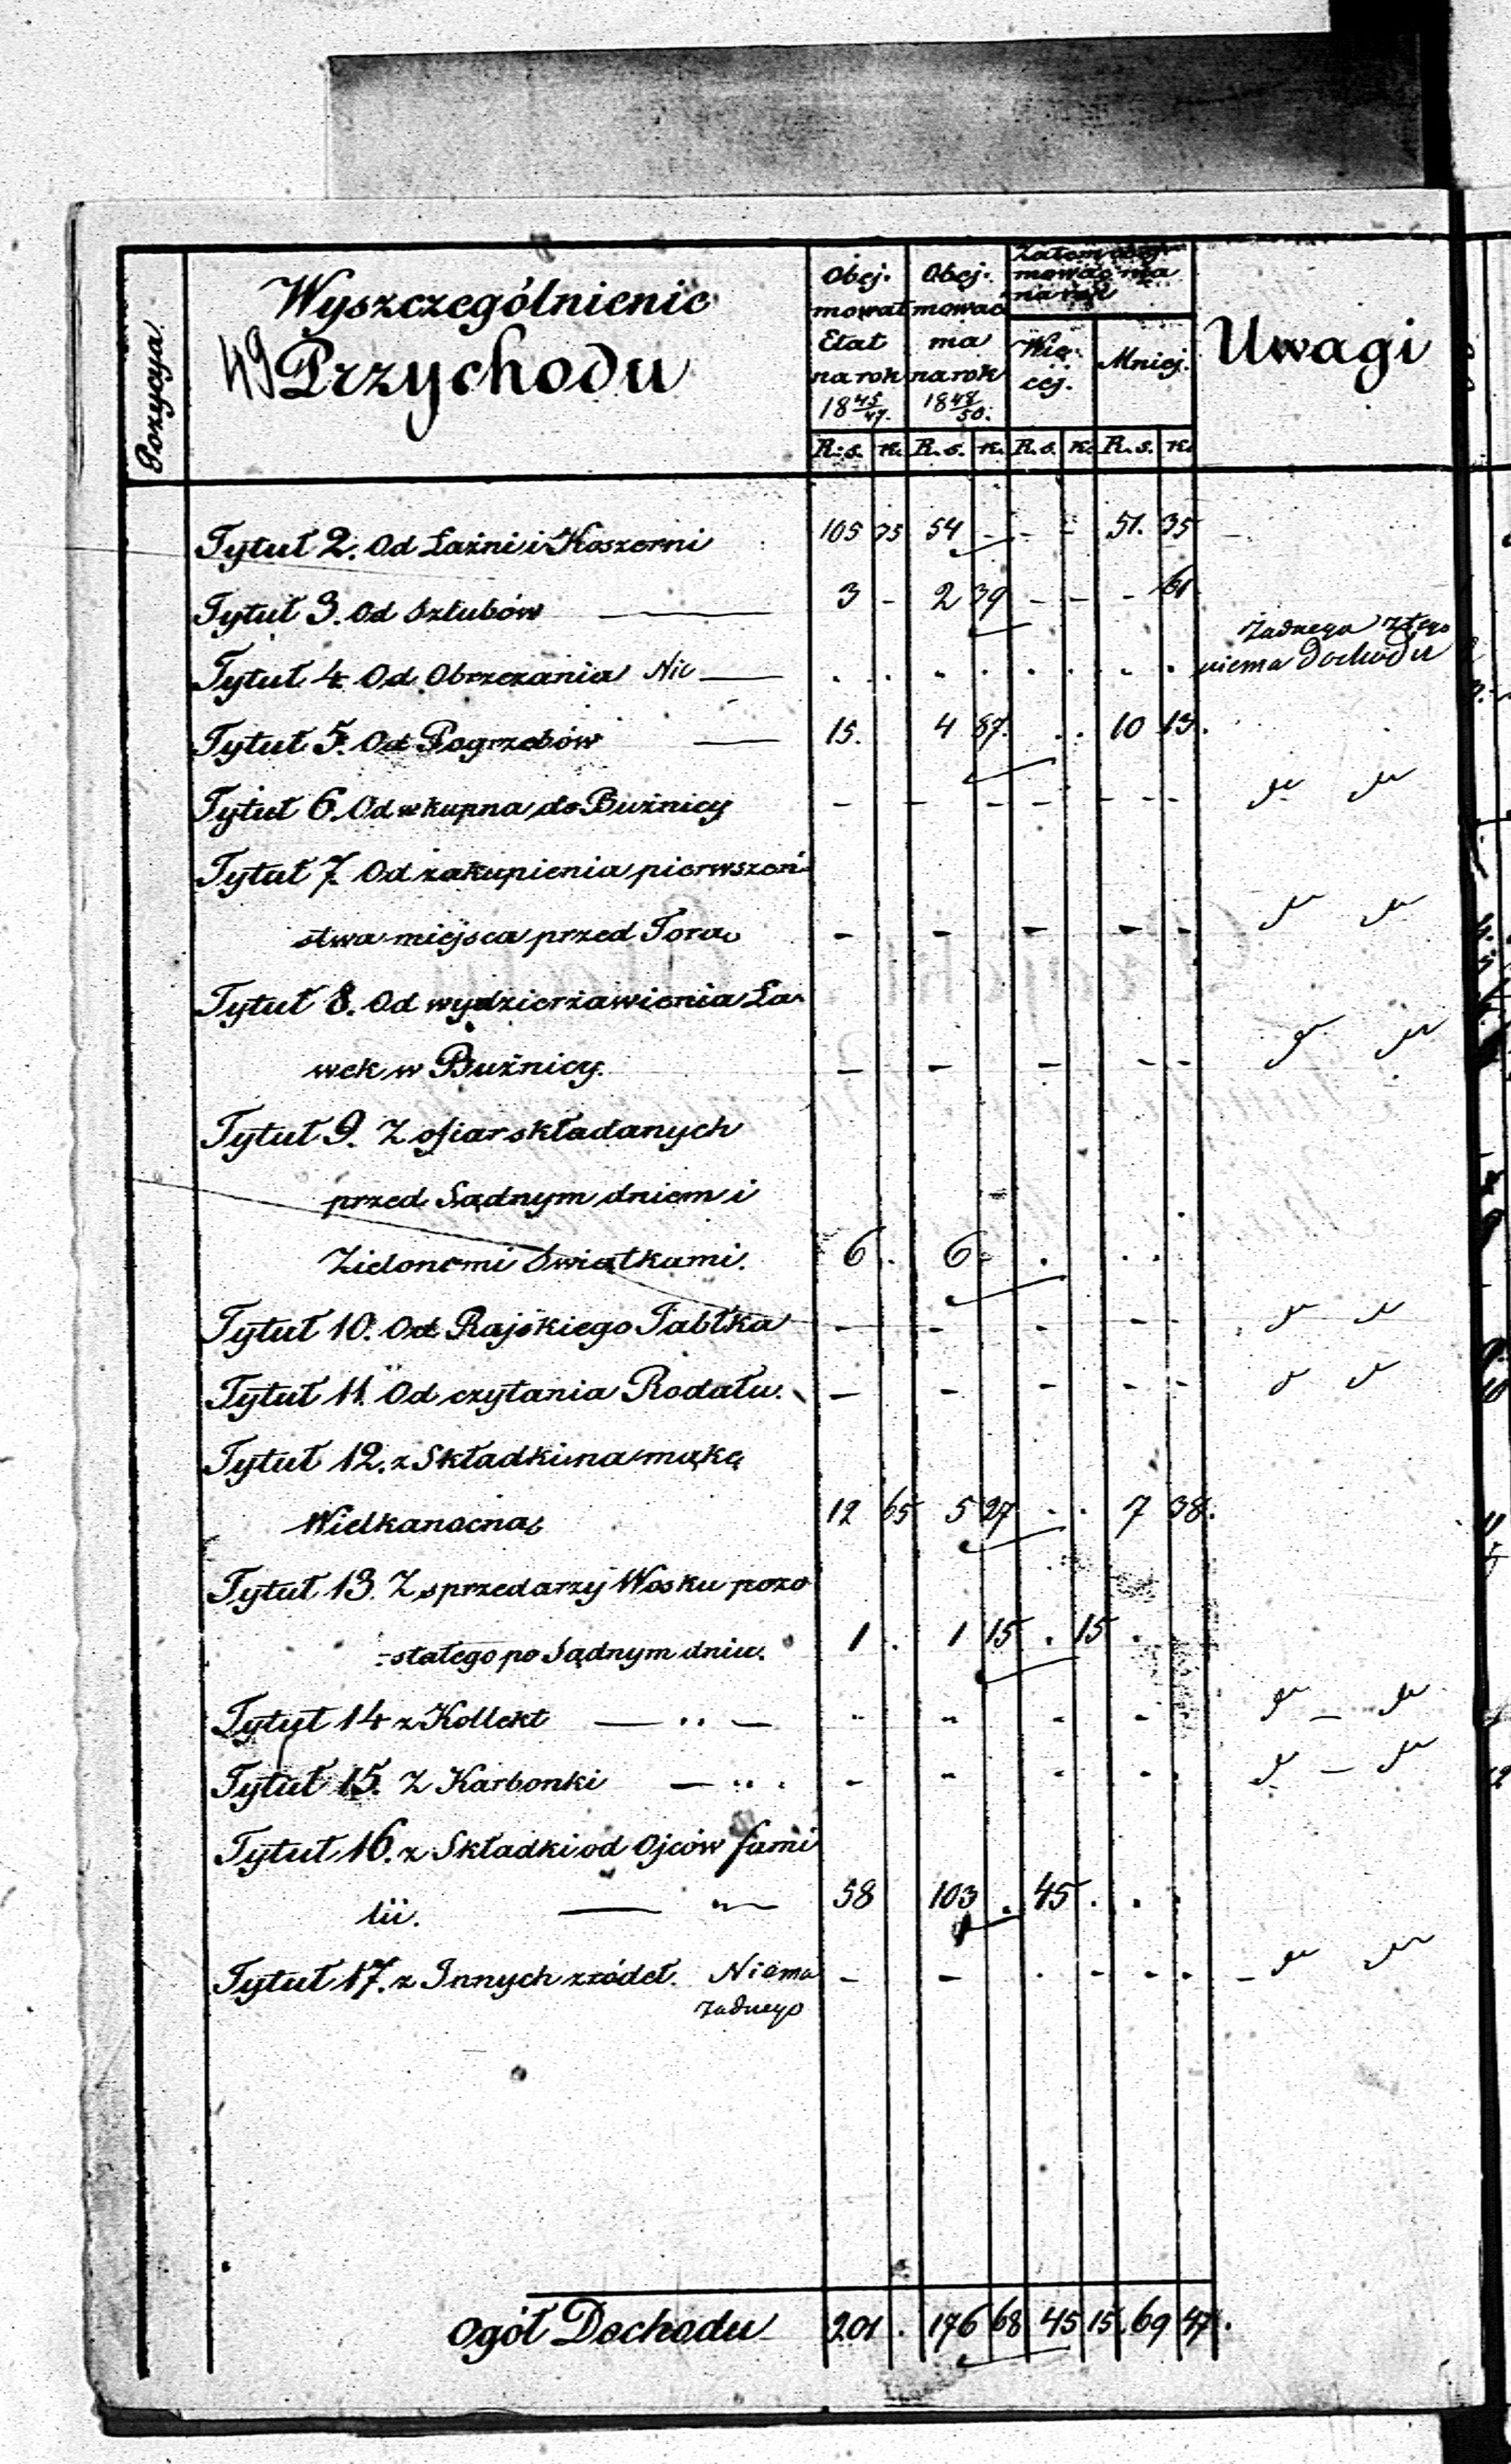 Pozycya
Wyszczególnienie
49 Przychodu
Obej. mował Etat na rok 18 45/47.
Obej. mować ma na rok 18 48/50.
Zatem obej mować ma na rok
Wię cej.
Mniej.
Uwagi
R.s. k. R.s. k. R.s. k. R.s. k.
Tytuł 2. Od Łaźni i Koszerni 105 35 54 - - - 51. 35
Tytuł 3. Od Szlubów — 3 - 2 39 - - - 61
Żadnego z tego
Tytuł 4. Od Obrzezania Nic — . . . . . . . . niema dochodu
Tytuł 5. Od Pogrzebów — 15. 4 87. . . 10 13.
Tytuł 6. Od wkupna do Buźnicy - - - - - - -
Tytuł 7. Od zakupienia pierwszeń
stwa miejsca przed Torą - - - - -
Tytuł 8. Od wydzierżawienia Ła
wek w Buźnicy. - - - - -
Tytuł 9. Z ofiar składanych
przed Sądnym dniem i
Zielonemi Swiątkami. 6 . 6 . . . .
Tytuł 10. Od Rajskiego Jabłka - - - - -
Tytuł 11. Od czytania Rodału. - - - - -
Tytuł 12. z Składki na mąkę
Wielkanocną 12 65 5 27 . . 7 38.
Tytuł 13. Z sprzedarzy Wosku pozo
-stałego po Sądnym dniu. 1 . 1 15 . 15 .
Tytuł 14 z Kollekt — .. — - - - -
Tytuł 15. Z Karbonki — .. . - - . - .
Tytuł 16. z Składki od Ojców fami
lii. — 58 103 . 45 . . .
Tytuł 17. z Innych zródeł. Niema - - . - - .
żadnego
Ogół Dochodu 201 . 176 68 45 15 69 47.